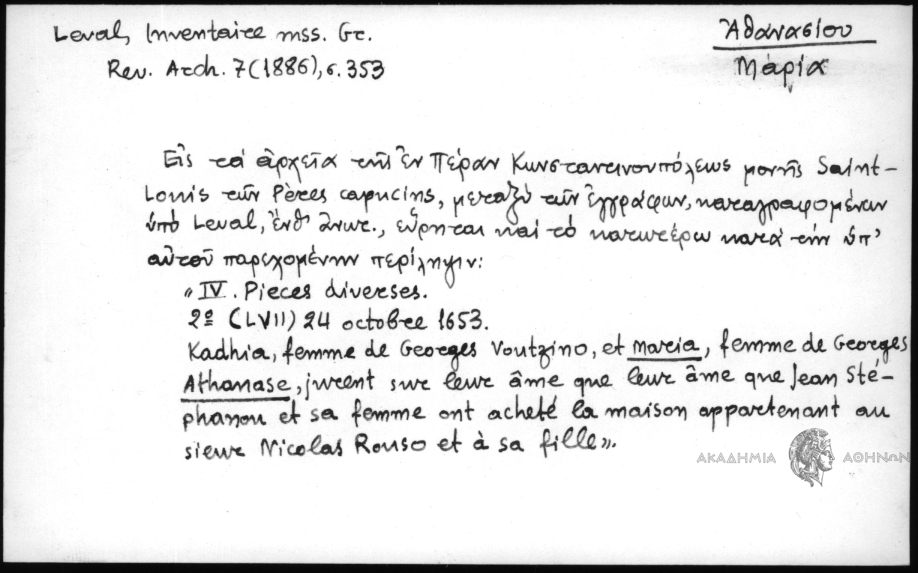 Leval, Inventaire mss. Gr.
Rev. Arch. 7 (1886), σ. 353
Ἀθανασίου
Μαρία
Εἰς τὰ ἀρχεῖα τῆς ἐν Πέραν Κωνσταντινουπόλεως μονῆς Saint-
Louis τῶν Pères capucins, μεταξὺ τῶν ἐγγράφων, καταγραφομένων
ὑπὸ Leval, ἔνθ' ἄνωτ., εὕρηται καὶ τὸ κατωτέρω κατὰ τὴν ὑπ'
αὐτοῦ παρεχομένην περίληψιν:
« IV. Pieces diverses.
2º (LVII) 24 octobre 1653.
Kadhia, femme de Georges Voutzino, et Maria, femme de Georges
Athanase, jurent sur leur âme que leur âme que Jean Sté-
phanou et sa femme ont acheté la maison appartenant au
sieur Nicolas Rouso et à sa fille».
ΑΚΑΔΗΜΙΑ ΑΘΗΝΩΝ